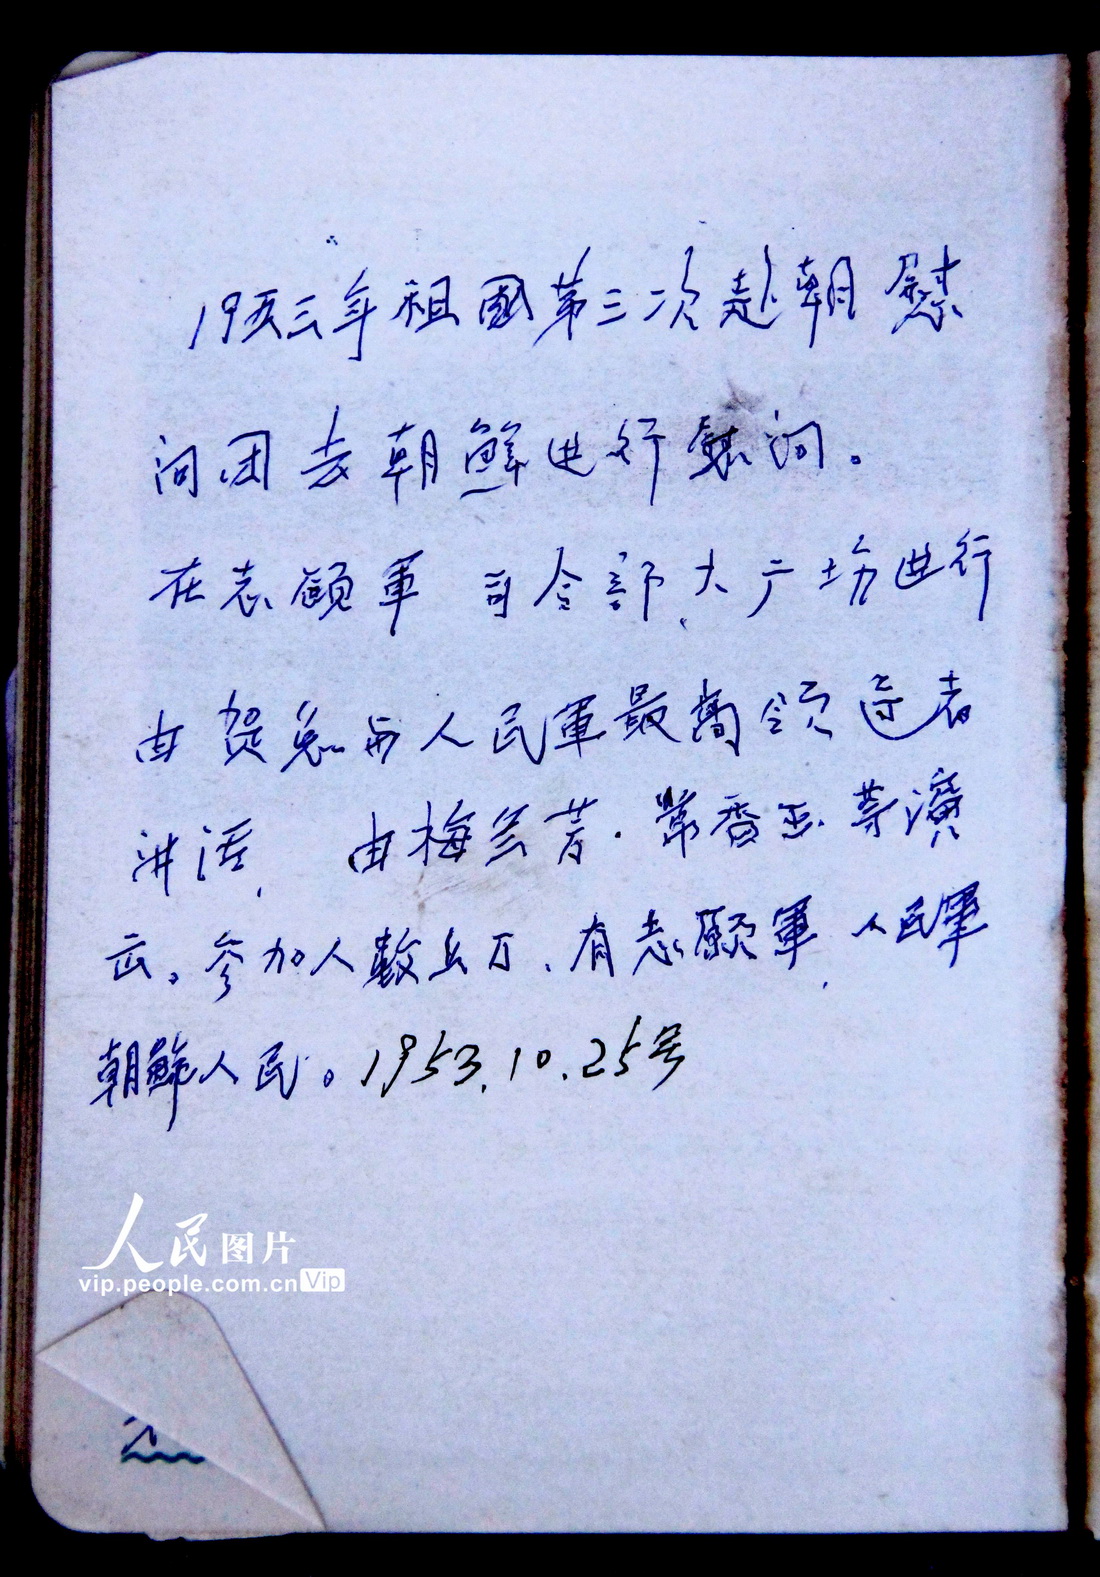 19五三年祖國第三次赴朝慰
问团去朝鮮进行慰问。
在志願軍 司令部大广场进行
由贺总与人民軍最高領导者
讲话, 由梅兰芳·常香玉等演
出。参加人数五万、有志願軍、人民軍
朝鮮人民。1953.10.25号
人民图片
vip.people.com.cn Vip